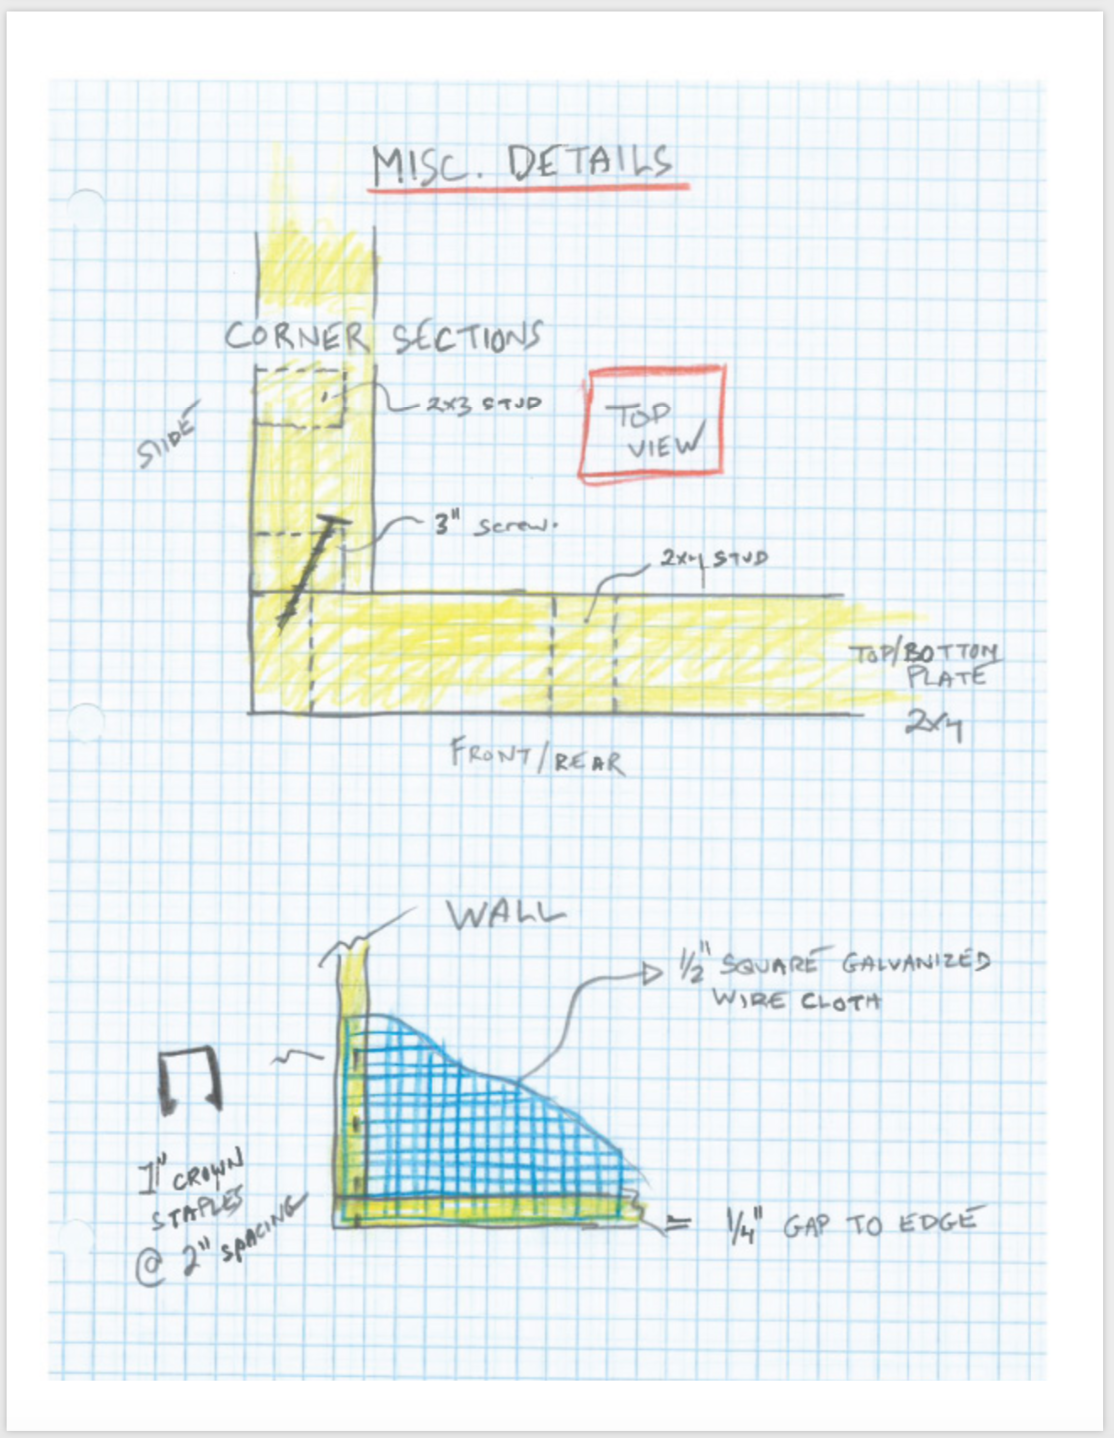 MISC. DETAILS
CORNER SECTIONS
2x3 STUD
SIDE
TOP
VIEW
3" screw.
2x4 STUD
TOP/BOTTOM
PLATE
2x4
FRONT/REAR
WALL
1/2" SQUARE GALVANIZED
WIRE CLOTH
1" CROWN
STAPLES
@ 2" SPACING
= 1/4" GAP TO EDGE